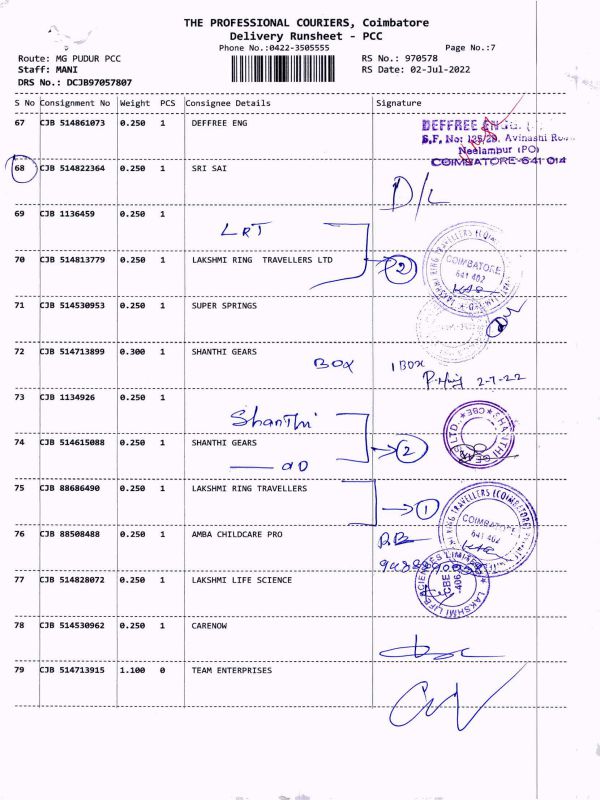 THE PROFESSIONAL COURIERS, Coimbatore
Delivery Runsheet - PCC
Phone No.:0422-3505555
Page No.:7
Route: MG PUDUR PCC
RS No.: 970578
Staff: MANI
RS Date: 02-Jul-2022
DRS No.: DCJB97057807
S No Consignment No Weight PCS Consignee Details Signature
67 CJB 514861073 0.250 1 DEFFREE ENG
DEFFREE ENGG.
S.F. No: 125/29, Avinashi Road
Neelambur (PO)
COIMBATORE-641 014
68 CJB 514822364 0.250 1 SRI SAI
D/L
69 CJB 1136459 0.250 1
LRT
70 CJB 514813779 0.250 1 LAKSHMI RING TRAVELLERS LTD
2
COIMBATORE
641 402
71 CJB 514530953 0.250 1 SUPER SPRINGS
72 CJB 514713899 0.300 1 SHANTHI GEARS
BOX 1 BOX
2-7-22
73 CJB 1134926 0.250 1
Shanthi
SHANTHI GEARS LTD. * CBE *
74 CJB 514615088 0.250 1 SHANTHI GEARS
2
75 CJB 88686490 0.250 1 LAKSHMI RING TRAVELLERS
1
RING TRAVELLERS (COIMBATORE)
COIMBATORE
641 402
76 CJB 88508488 0.250 1 AMBA CHILDCARE PRO
77 CJB 514828072 0.250 1 LAKSHMI LIFE SCIENCE
LAKSHMI LIFE SCIENCES LIMITED
CBE
78 CJB 514530962 0.250 1 CARENOW
79 CJB 514713915 1.100 0 TEAM ENTERPRISES